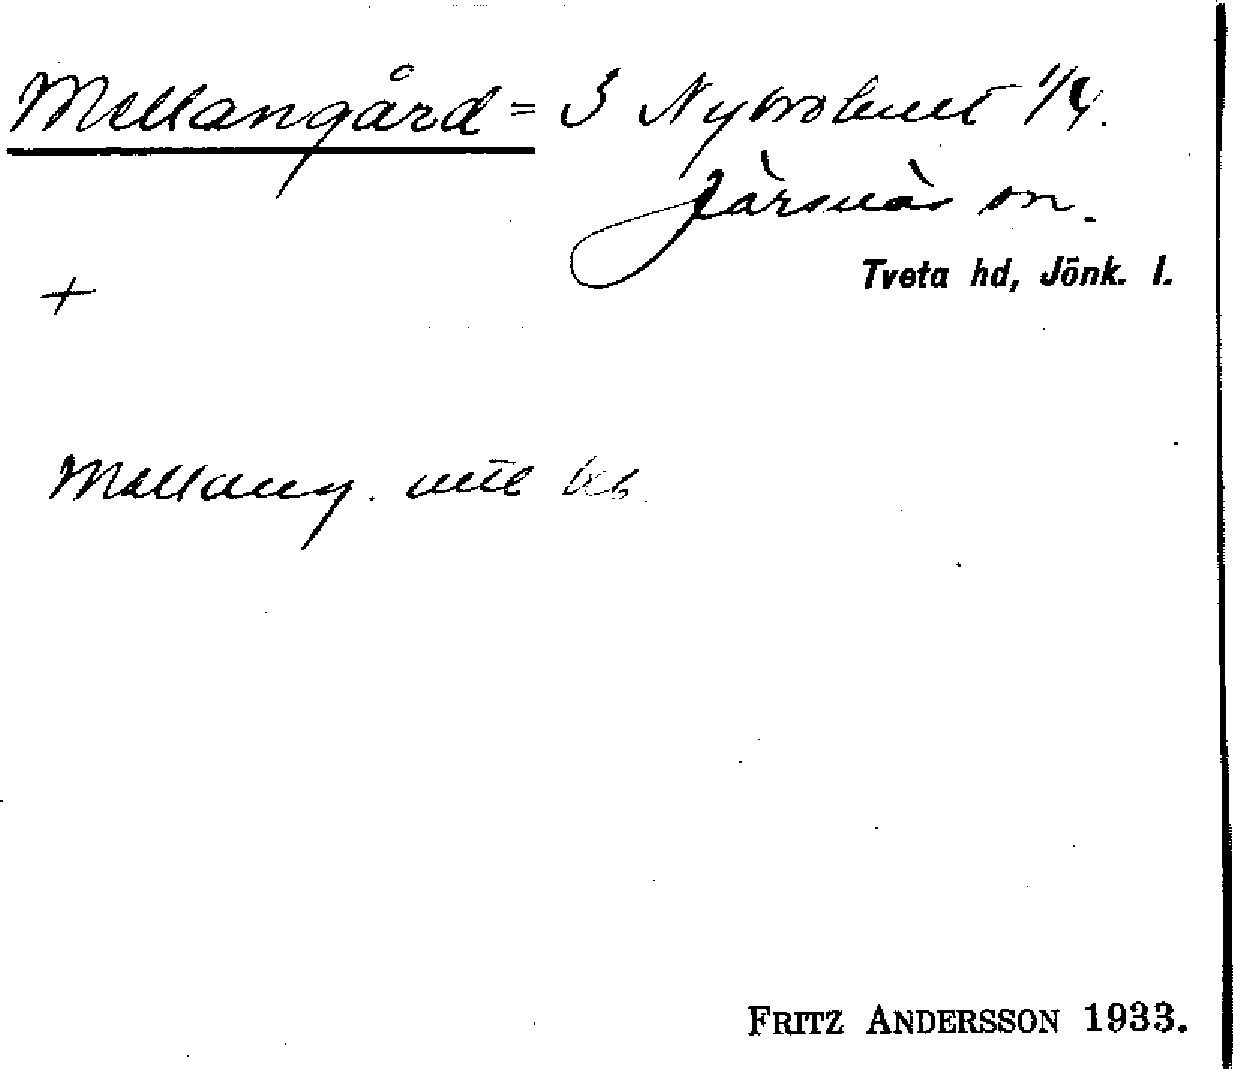 Mellangård = S Nybrohult 1/4.
Järsnäs sn.
Tveta hd, Jönk. l.
+
Mellang. inte
FRITZ ANDERSSON 1933.